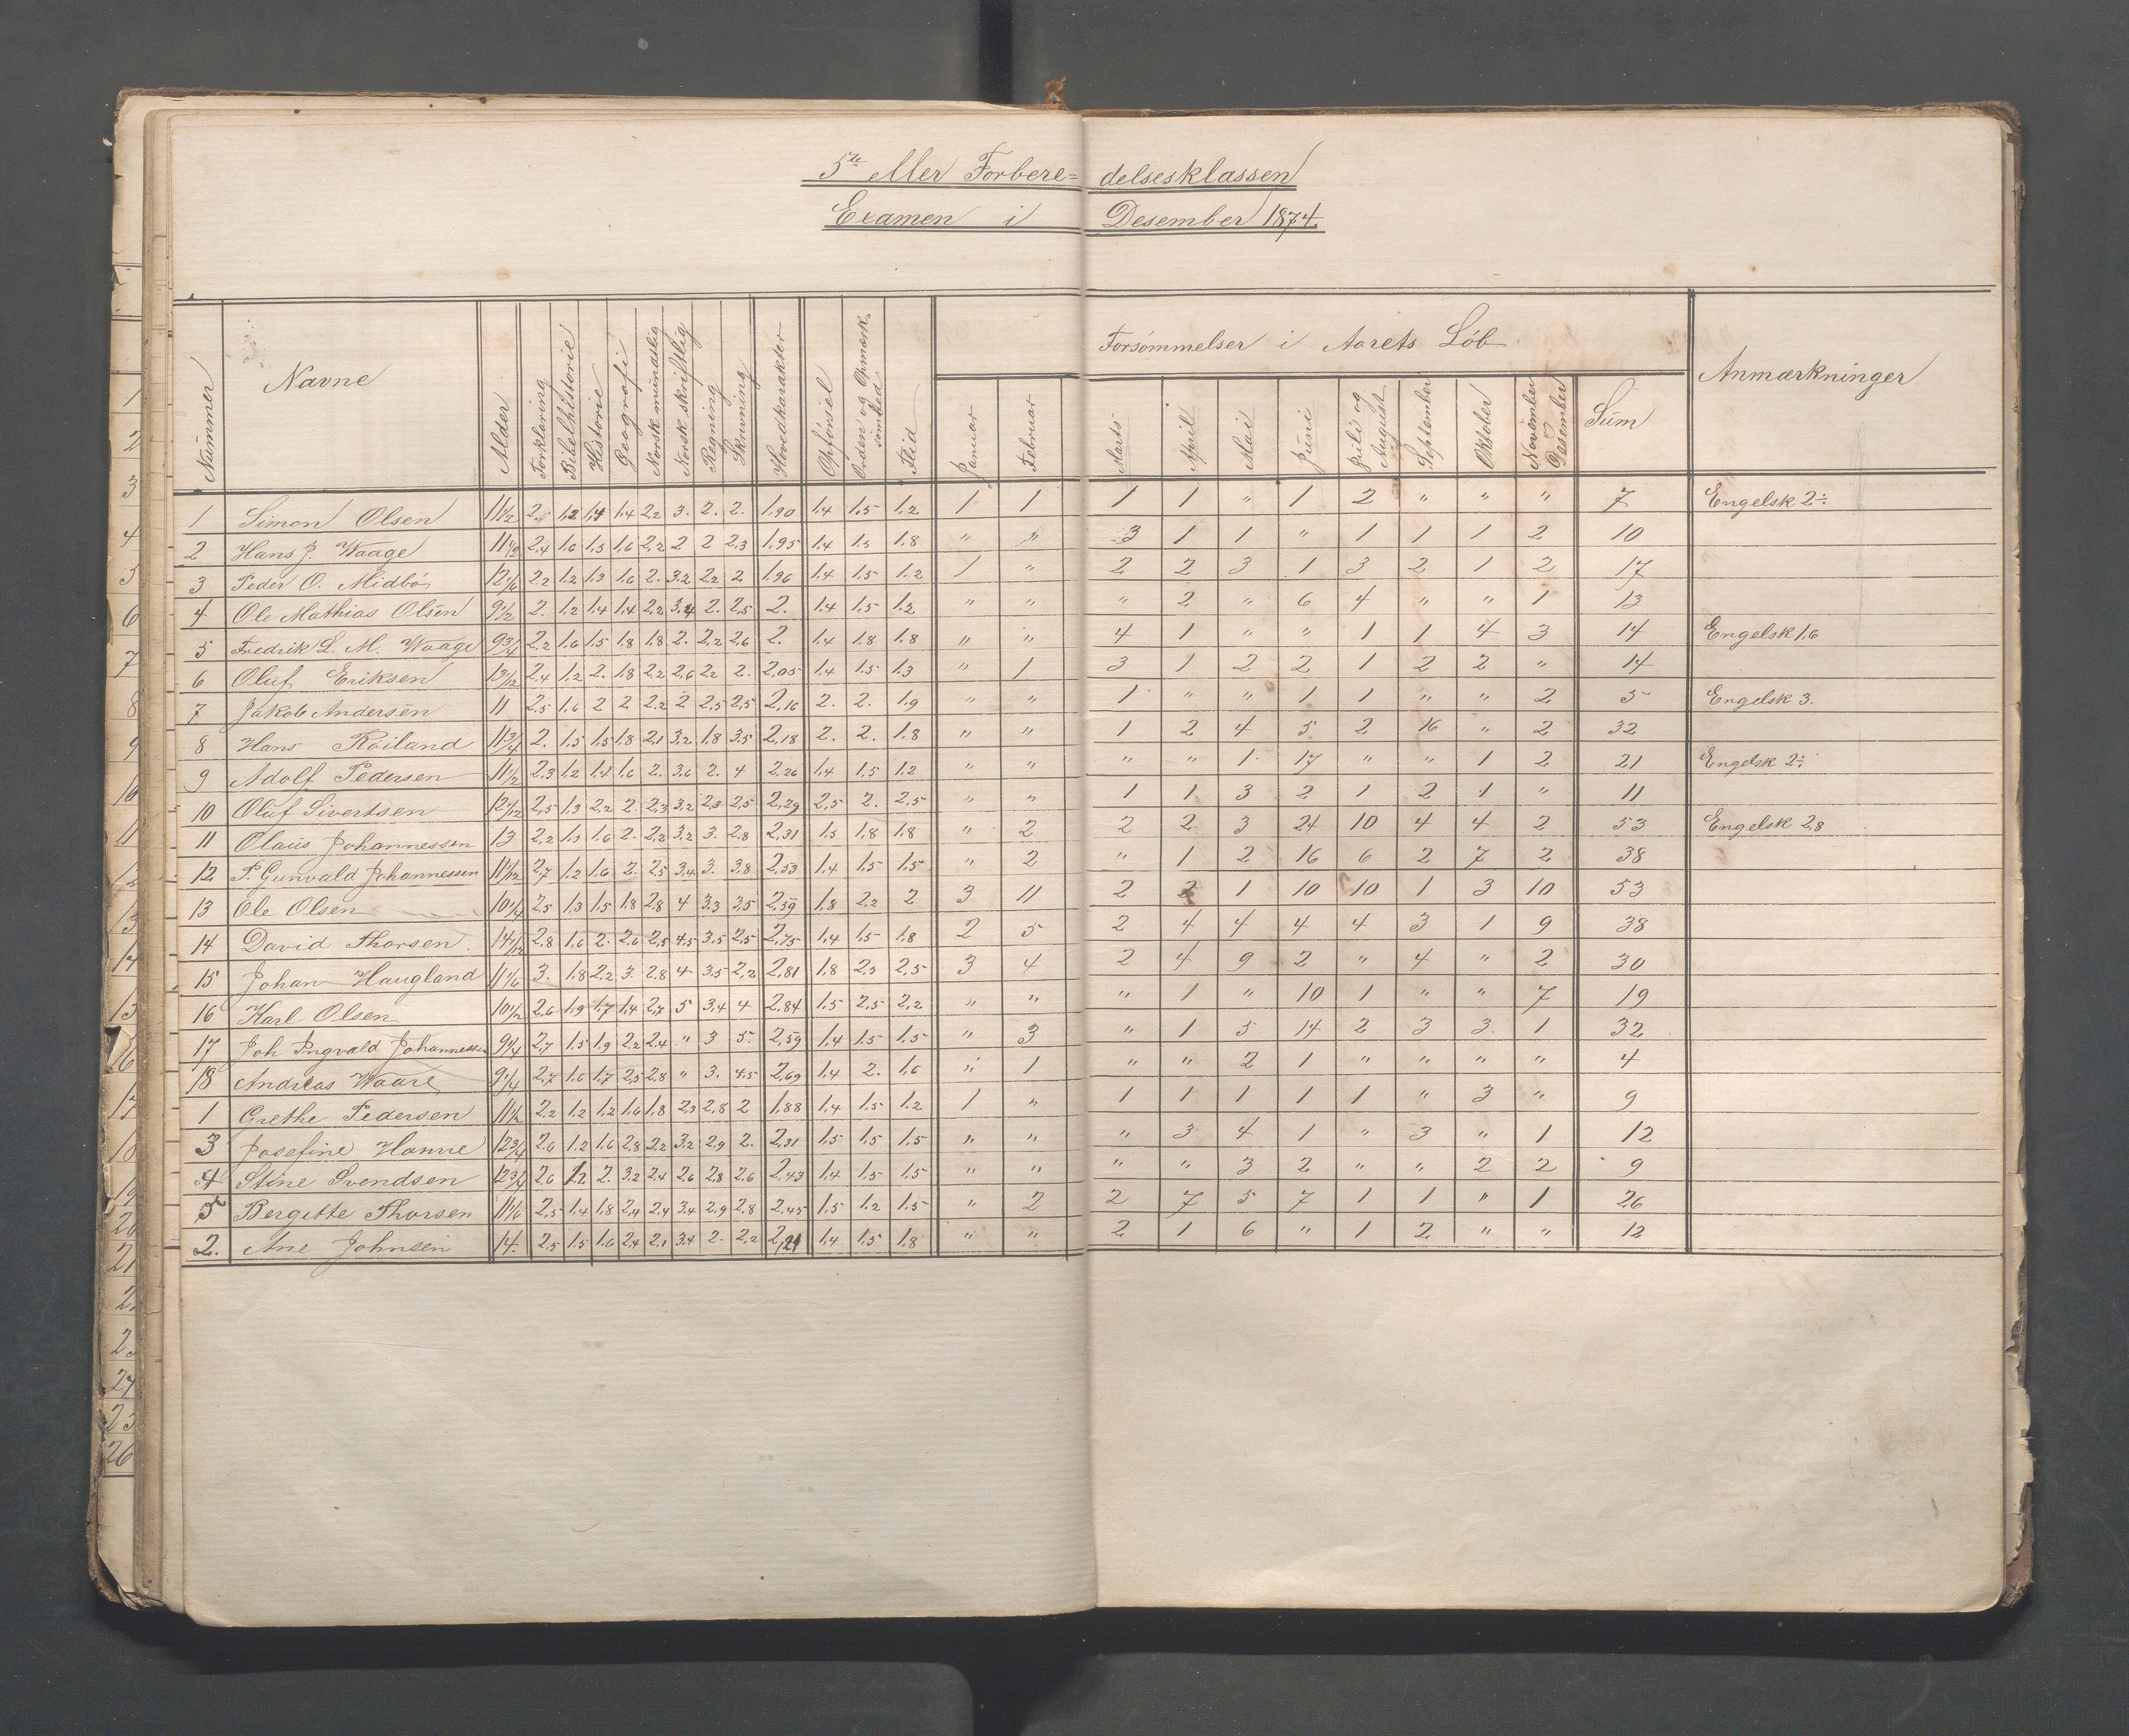 5te eller Forbere= delsesklassen
Examen i Desember 1874.
Nummer Navne Alder Forklaring Bibelhistorie Historie Geografi Norsk mundtlig Norsk skriftlig Regning Skrivning Hovedkarakter Opførsel Orden og Opmærk-somhed Flid Januar Februar Forsømmelser i Aarets Løb Marts April Mai Juni Juli og August September Oktober November Desember Sum Anmærkninger
1 Simon Olsen 11 1/2 1.2 1.4 1.4 2.2 3. 2. 2. 1.90 1.4 1.5 1.2 1 1 1 1 " 1 2 " " " 7 Engelsk 2÷
2 Hans J. Waage 11 1/2 2.4 1.6 1.5 1.6 2.2 2 2 2.3 1.95 1.4 1.5 1.8 " " 3 1 1 " 1 1 1 2 10
3 Peder O. Midbö 12 1/6 2.2 1.2 1.9 1.6 2. 3.2 2.2 2 1.96 1.4 1.5 1.2 1 " 2 2 3 1 3 2 1 2 17
4 Ole Mathias Olsen 9 1/2 2. 1.2 1.4 1.4 2.2 3.4 2. 2.5 2. 1.4 1.5 1.2 " " " 2 " 6 4 " " 1 13
5 Fredrik L. M. Waage 9 3/4 2.2 1.6 1.5 1.8 1.8 2. 2.2 2.6 2. 1.4 1.8 1.8 " " 4 1 " " 1 1 4 3 14 Engelsk 1.6
6 Oluf Eriksen 13 1/12 2.4 1.2 2. 1.8 2.2 2.6 2.2 2. 2.05 1.4 1.5 1.3 " 1 3 1 2 2 1 2 2 " 14
7 Jakob Andersen 11 2.5 1.6 2 2 2.2 2 2.5 2.5 2.16 2. 2. 1.9 " " 1 " " 1 1 " " 2 5 Engelsk 3.
8 Hans Röiland 11 3/4 2. 1.5 1.5 1.8 2.1 3.2 1.8 3.5 2.18 2. 2. 1.8 " " 1 2 4 5 2 16 " 2 32
9 Adolf Pedersen 11 1/2 2.3 1.2 1.4 1.6 2. 3.6 2. 4 2.26 1.4 1.5 1.2 " " " " 1 17 " " 1 2 21 Engelsk 2÷
10 Oluf Sivertsen 12 1/12 2.5 1.3 2.2 2. 2.3 3.2 2.3 2.5 2.29 2.5 2. 2.5 " " 1 1 3 2 1 2 1 " 11
11 Olaus Johannessen 13 2.2 1.3 1.6 2. 2.2 3.2 3. 2.8 2.31 1.5 1.8 1.8 " 2 2 2 3 24 10 4 4 2 53 Engelsk 2.8
12 P. Gunvald Johannessen 11 1/12 2.7 1.2 1.6 2. 2.5 3.4 3. 3.8 2.53 1.4 1.5 1.5 " 2 " 1 2 16 6 2 7 2 38
13 Ole Olsen 10 1/4 2.5 1.3 1.5 1.8 2.8 4 3.3 3.5 2.59 1.8 2.2 2 3 11 2 2 1 10 10 1 3 10 53
14 David Thorsen. 14 1/12 2.8 1.6 2. 2.6 2.5 4.5 3.5 2.5 2.75 1.4 1.5 1.8 2 5 2 4 4 4 4 3 1 9 38
15 Johan Haugland 11 1/6 3. 1.8 2.2 3. 2.8 4 3.5 2.2 2.81 1.8 2.3 2.5 3 4 2 4 9 2 " 4 " 2 30
16 Karl Olsen 10 1/2 2.6 1.9 1.7 1.4 2.7 5 3.4 4 2.84 1.5 2.5 2.2 " " " 1 " 10 1 " " 7 19
17 Joh Ingvald Johannessen 9 1/4 2.7 1.5 1.9 2.2 2.4 " 3 5. 2.59 1.4 1.5 1.5 " 3 " 1 5 14 2 3 3 1 32
18 Andreas Waare 9 1/4 2.7 1.6 1.7 2.5 2.8 " 3. 4.5 2.69 1.4 2. 1.6 " 1 " " 2 1 " " " " 4
1 Grethe Pedersen 11 1/2 2.2 1.2 1.2 1.6 1.8 2.3 2.8 2 1.88 1.4 1.5 1.2 1 " 1 1 1 1 1 " 3 " 9
3 Josefine Hanne 12 3/4 2.6 1.2 1.6 2.8 2.2 3.2 2.9 2. 2.31 1.5 1.5 1.5 " " " 3 4 1 " 3 " 1 12
4 Stine Svendsen 12 3/4 2.6 1.2 2. 3.2 2.4 2.6 2.8 2.6 2.43 1.4 1.5 1.5 " " " " 3 2 " " 2 2 9
5 Bergitte Thorsen 11 1/6 2.5 1.4 1.8 2.4 2.4 3.4 2.9 2.8 2.45 1.5 1.2 1.5 " 2 2 7 5 7 1 1 " 1 26
2. Ane Johnsen 14. 2.5 1.5 1.6 2.4 2.1 3.4 2. 2.2 2.21 1.4 1.5 1.8 " " 2 1 6 " 1 2 " " 12